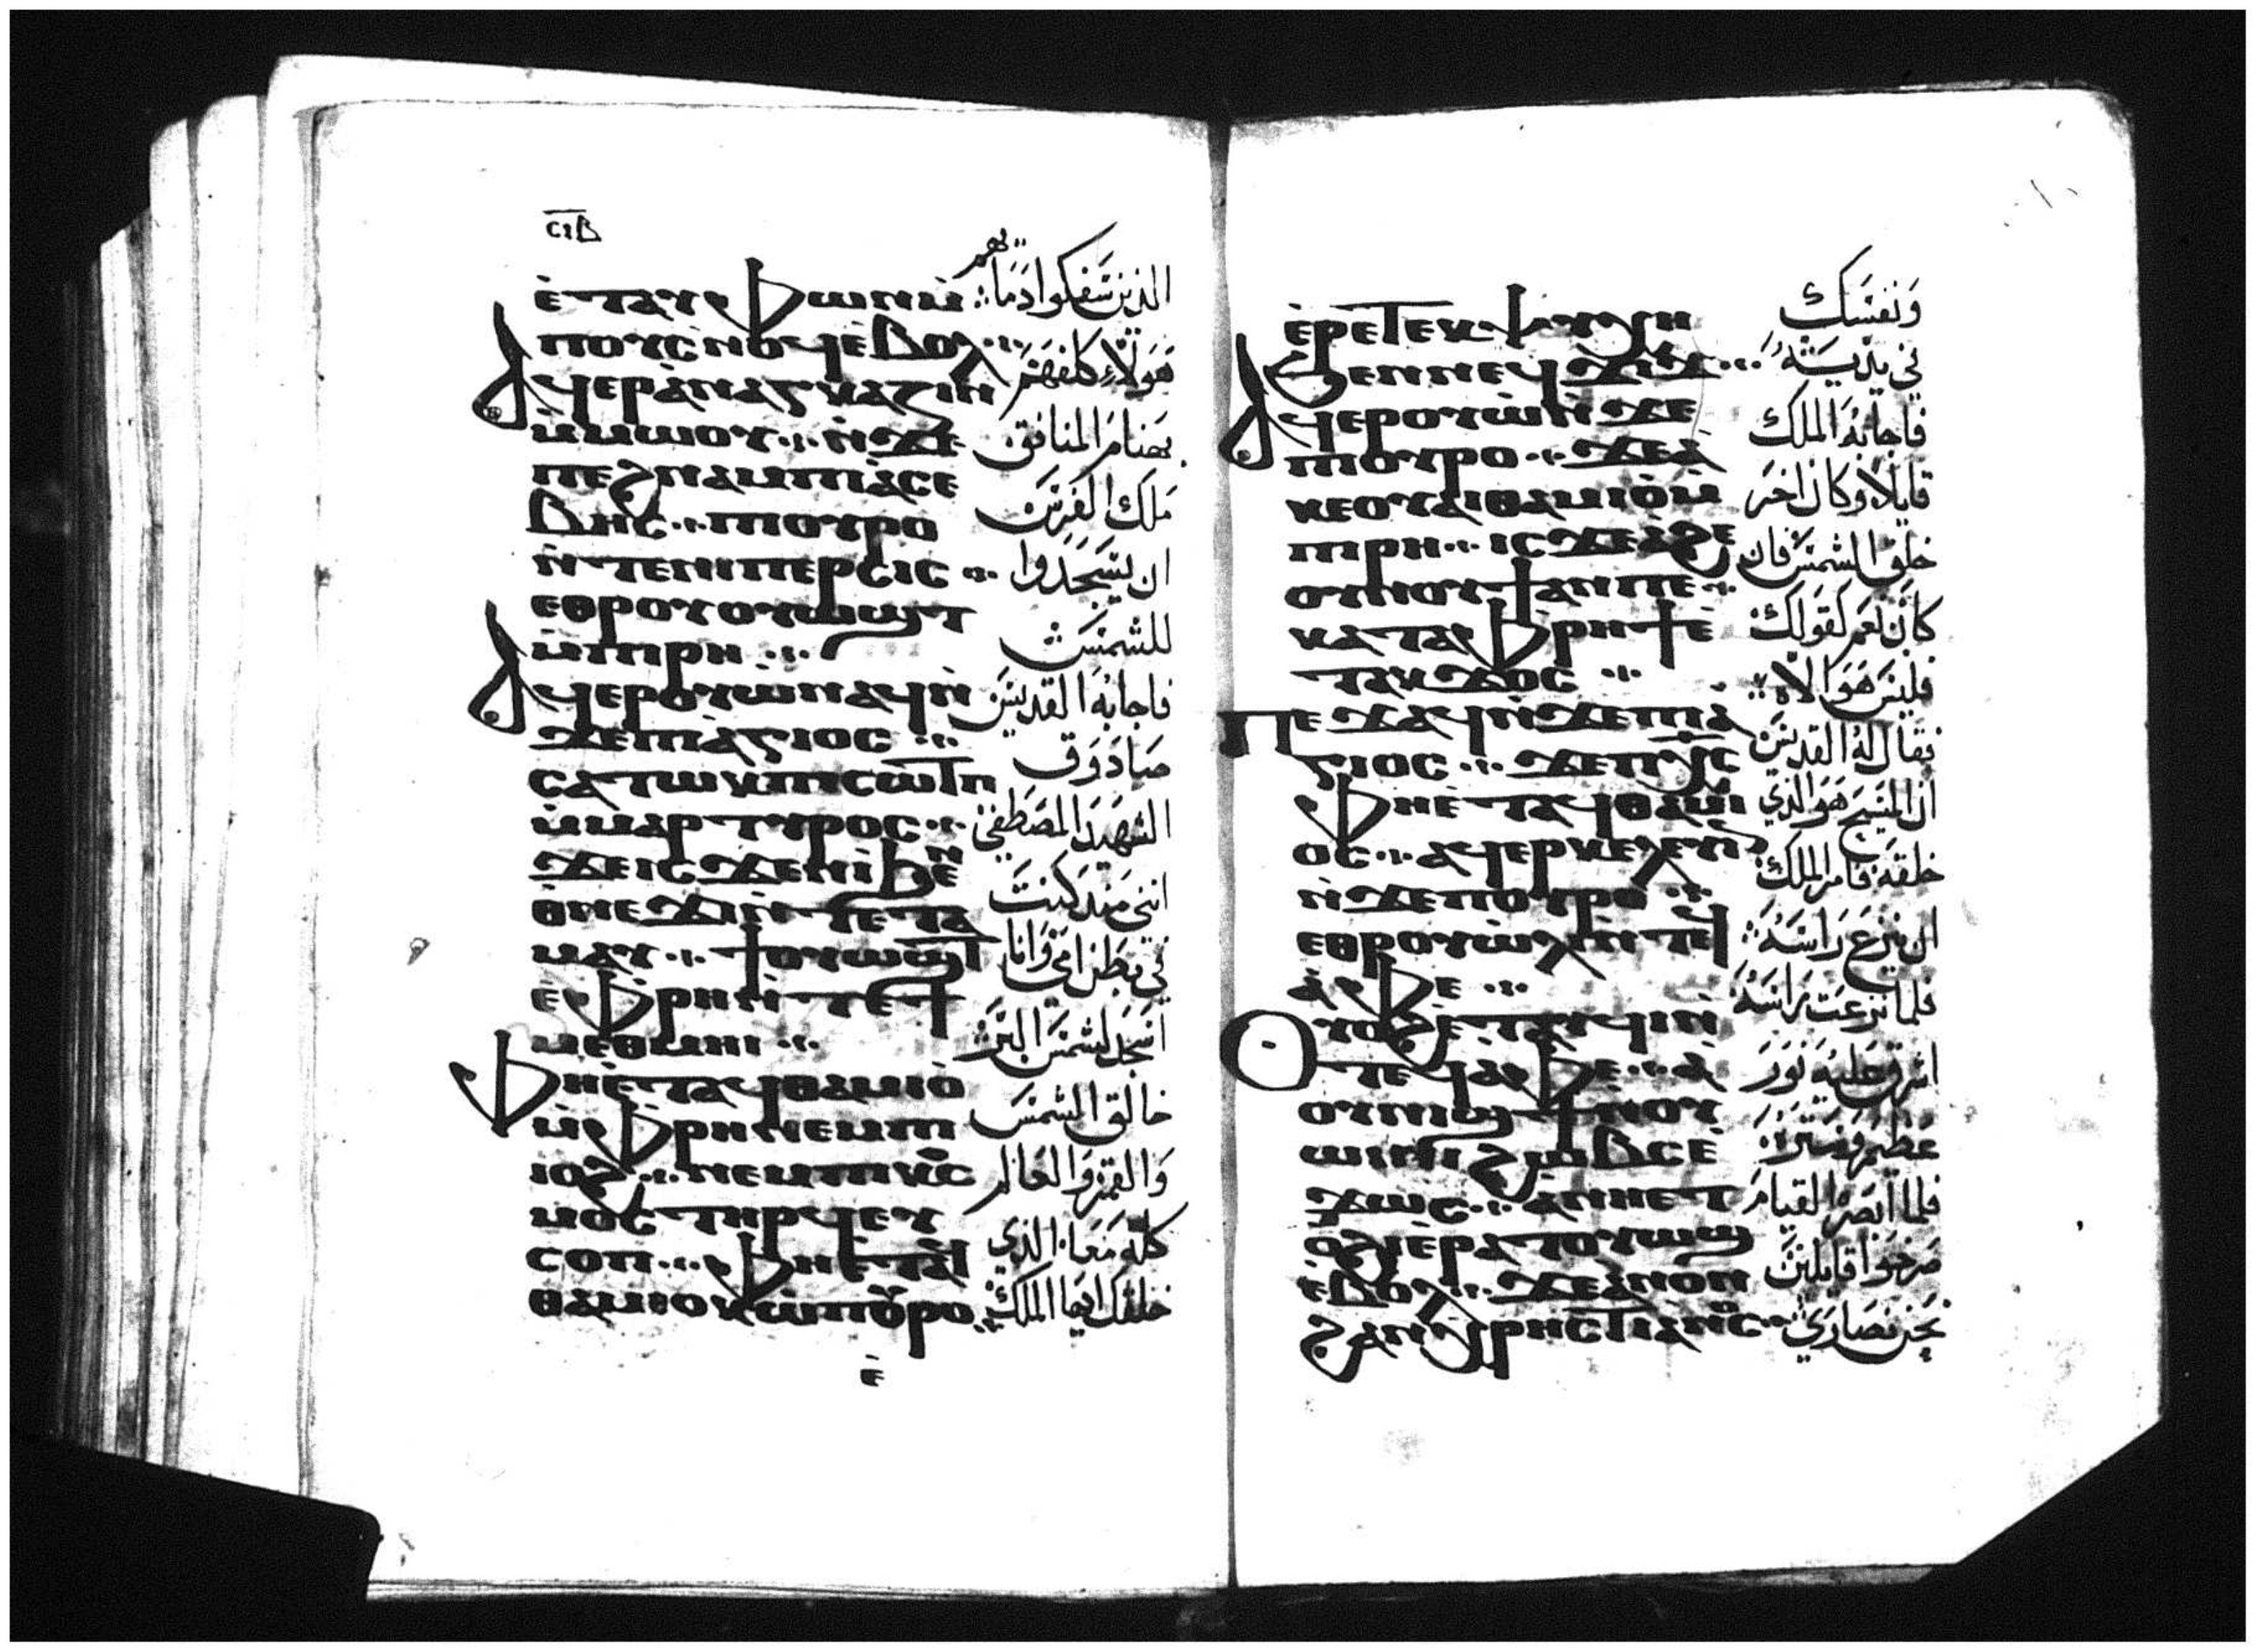 ⲥⲓⲃ
ⲉ̀ⲧⲁⲩⲫⲱⲛⲙ̀
ⲡⲟⲩⲥⲛⲟϥⲉ̀ⲃⲟⲗ
ⲁϥⲉⲣⲁ̀ⲛⲁⲅⲕⲁⲍⲓⲛ
ⲙ̀ⲙⲱⲟⲩ ⲛ̀ϫⲉ
ⲡⲉϩⲛⲁⲙⲡⲓⲁ̀ⲥⲉ
ⲃⲏⲥ ⲡⲟⲩⲣⲟ
ⲛ̀ⲧⲉⲛⲓⲡⲉⲣⲥⲓⲥ
ⲉⲑⲣⲟⲩⲟⲩⲱϣⲧ
ⲙ̀ⲡⲓⲣⲏ
ⲁϥⲉⲣⲟⲩⲱ̀ⲛⲁϥⲛ̀
ϫⲉⲡⲓⲁ̀ⲅⲓⲟⲥ
ⲥⲁⲧⲱⲕⲡⲓⲥⲱⲧⲡ
ⲙ̀ⲙⲁⲣⲧⲩⲣⲟⲥ
ϫⲉⲓⲥϫⲉⲛⲓ̀ϧⲉⲛ
ⲑⲙⲉϫⲓⲛ̀ⲧⲉⲧⲁ
ⲙⲁⲩ ϯⲟⲩⲱϣⲧ
ⲉ̀ⲫⲣⲏⲛ̀ⲧⲉϯ
ⲙⲉⲑⲙⲏⲓ
ⲫⲏⲉ̀ⲧⲁϥⲑⲁⲙⲓⲟ̀
ⲙ̀ⲫⲣⲏⲛⲉⲙⲡⲓ
ⲓⲟϩ ⲛⲉⲙⲡⲓⲕⲟⲥ
ⲙⲟⲥⲧⲏⲣϥⲉⲩ
ⲥⲟⲡ ⲫⲏⲉ̀ⲧⲁϥ
ⲑⲁⲙⲓⲟⲕⲱ̀ⲡⲟⲩⲣⲟ
ⲉ̀
الذين سفكوا دماهم
هولاء كلفهم
بهنام المنافق
ملك الفرس
ان يسجدوا
للشمس
فاجابه القديس
صادوق
الشهيد المصطفي
انني منذ كنت
في بطن امي وانا
اسجد لشمس البر
خالق الشمس
والقمر والعالم
كله معا الذي
خلقك ايها الملك
ⲉ̀ⲣⲉⲧⲉⲕⲯⲩⲭⲏ
ϧⲉⲛⲛⲉϥϫⲓϫ
ⲁϥⲉⲣⲟⲩⲱ̀ⲛ̀ϫⲉ
ⲡⲟⲩⲣⲟ ϫⲉⲁ̀
ⲕⲉⲟⲩⲁⲓⲑⲁⲙⲓⲟ̀ⲙ̀
ⲡⲓⲣⲏ ⲓⲥϫⲉⲁ̀ϩⲉ
ⲟⲩⲛⲟⲩϯⲁⲛⲡⲉ
ⲕⲁⲧⲁⲫⲣⲏϯⲉ̀
ⲧⲁⲕϫⲟⲥ
ⲡⲉϫⲁϥⲛ̀ϫⲉⲡⲓⲁ̀
ⲅⲓⲟⲥ ϫⲉⲡⲭⲥ
ⲫⲏⲉ̀ⲧⲁϥⲑⲁⲙⲓ
ⲟⲥ ⲁϥⲉⲣⲕⲉⲗⲉⲩⲓⲛ
ⲛ̀ϫⲉⲡⲟⲩⲣⲟ
ⲉⲑⲣⲟⲩⲱ̀ⲗⲓⲛ̀ⲧⲉϥ
ⲁ̀ⲫⲉ
ⲟⲩⲟϩⲉ̀ⲧⲁⲩϥⲓⲛ̀
ⲧⲉϥⲁ̀ⲫⲉ ⲁ̀
ⲟⲩⲛⲓϣϯⲛⲟⲩ
ⲱⲓⲛⲓ ϩⲱⲃⲥⲉ̀
ϫⲱϥ ⲁⲛⲛⲉⲧ
ⲟϩⲓⲉ̀ⲣⲁⲧⲟⲩⲱϣ
ⲉ̀ⲃⲟⲗ ϫⲉⲁ̀ⲛⲟⲛ
ϩⲁⲛⲭⲣⲏⲥⲧⲓⲁⲛⲟⲥ
ونفسك
في يديه
فاجابه الملك
قايلا وكان اخر
خلق الشمس فان
كان نعم كقولك
فليس هو الاه
فقال له القديس
ان المسيح هو الذي
خلقه فامر الملك
ان ينزع راسه
فلما نزعت راسه
اشرق عليه نور
عظيم وستره
فلما ابصر القيام
صرخوا قايلين
نحن نصاري